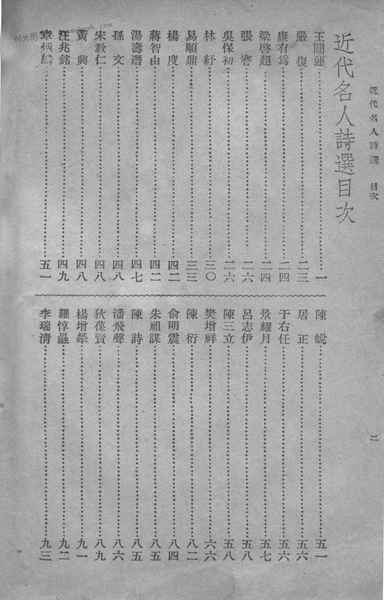 近代名人詩選 目次
近代名人詩選目次
王闓運 一
嚴復 二三
康有為 二四
梁啓超 二四
張謇 二六
吳保初 二六
林紓 三〇
易順鼎 三三
楊度 四二
蔣智由 四二
湯壽潛 四七
孫文 四八
宋教仁 四八
黃興 四九
汪兆銘 四九
章炳麟 五一
陳蛻 五一
居正 五六
于右任 五六
景耀月 五七
呂志伊 五八
陳三立 五八
樊增祥 六六
陳衍 八二
俞明震 八四
朱祖謀 八五
陳詩 八五
潘飛聲 八六
狄葆賢 八九
楊增犖 九一
羅惇曧 九二
李瑞清 九三
二